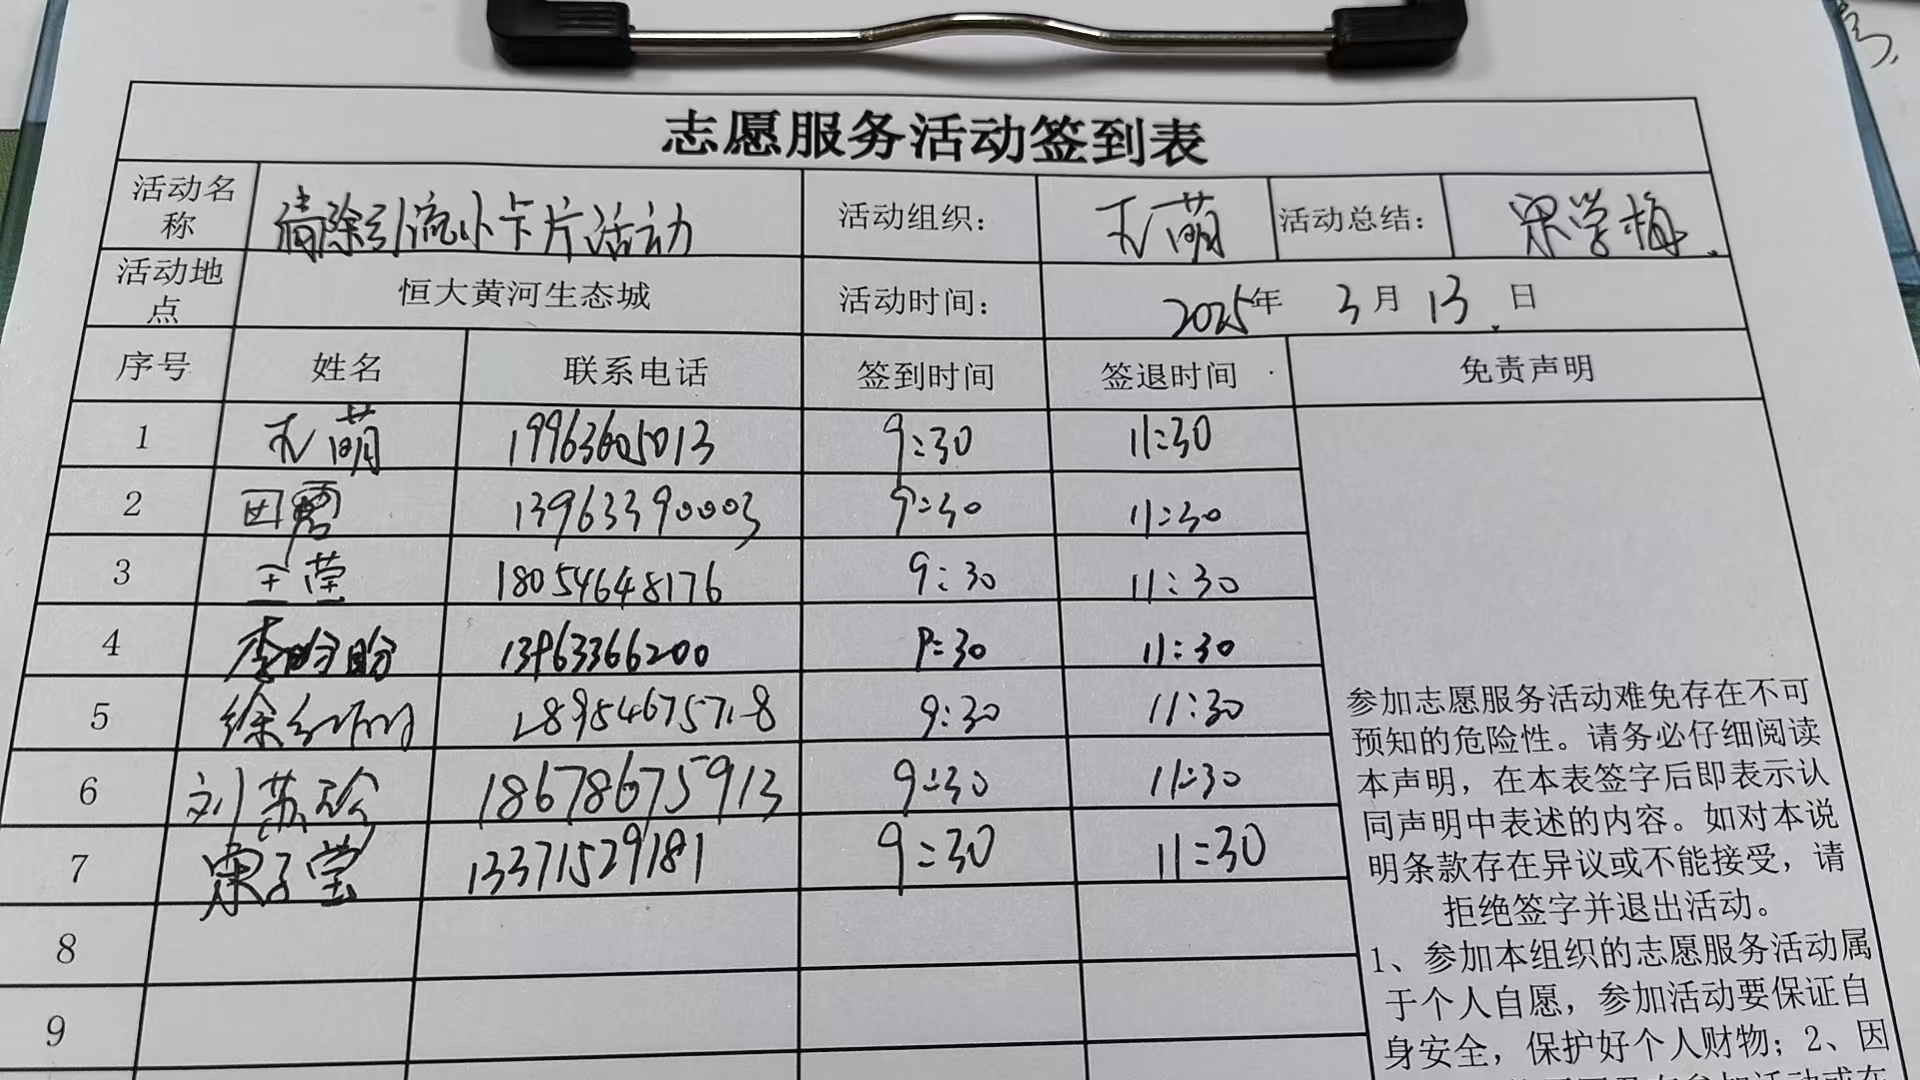 志愿服务活动签到表
活动名称 清除引流小卡片活动 活动组织： 尤萌 活动总结： 宋学梅
活动地点 恒大黄河生态城 活动时间： 2025年 3月 13日
序号 姓名 联系电话 签到时间 签退时间 免责声明
1 尤萌 19963605013 9:30 11:30
2 田露 13963390003 9:30 11:30
3 王莹 18054648176 9:30 11:30
4 李盼盼 13963366200 9:30 11:30
5 徐 18954675718 9:30 11:30
6 刘苏珍 18678675913 9:30 11:30
7 宋子莹 13371529181 9:30 11:30
8
9
参加志愿服务活动难免存在不可
预知的危险性。请务必仔细阅读
本声明，在本表签字后即表示认
同声明中表述的内容。如对本说
明条款存在异议或不能接受，请
拒绝签字并退出活动。
1、参加本组织的志愿服务活动属
于个人自愿，参加活动要保证自
身安全，保护好个人财物；2、因